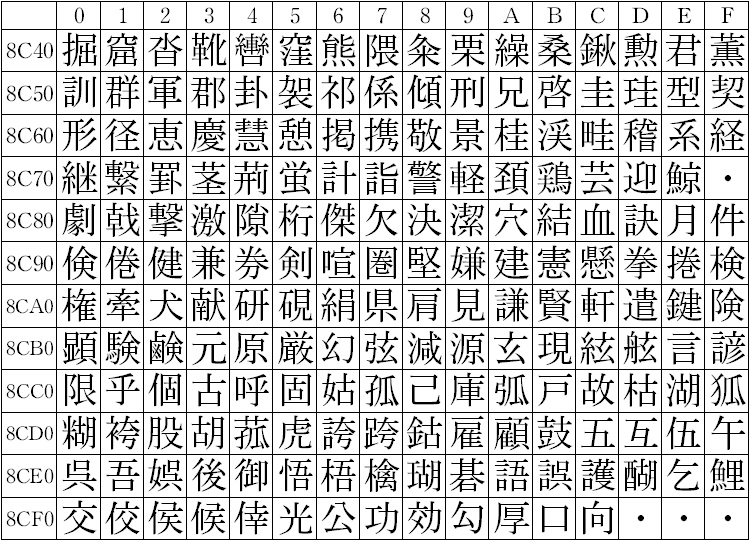 0 1 2 3 4 5 6 7 8 9 A B C D E F
8C40 掘 窟 沓 靴 轡 窪 熊 隈 粂 栗 繰 桑 鍬 勲 君 薫
8C50 訓 群 軍 郡 卦 袈 祁 係 傾 刑 兄 啓 圭 珪 型 契
8C60 形 径 恵 慶 慧 憩 掲 携 敬 景 桂 渓 畦 稽 系 経
8C70 継 繋 罫 茎 荊 蛍 計 詣 警 軽 頚 鶏 芸 迎 鯨 ・
8C80 劇 戟 撃 激 隙 桁 傑 欠 決 潔 穴 結 血 訣 月 件
8C90 倹 倦 健 兼 券 剣 喧 圏 堅 嫌 建 憲 懸 拳 捲 検
8CA0 権 牽 犬 献 研 硯 絹 県 肩 見 謙 賢 軒 遣 鍵 険
8CB0 顕 験 鹸 元 原 厳 幻 弦 減 源 玄 現 絃 舷 言 諺
8CC0 限 乎 個 古 呼 固 姑 孤 己 庫 弧 戸 故 枯 湖 狐
8CD0 糊 袴 股 胡 菰 虎 誇 跨 鈷 雇 顧 鼓 五 互 伍 午
8CE0 呉 吾 娯 後 御 悟 梧 檎 瑚 碁 語 誤 護 醐 乞 鯉
8CF0 交 佼 侯 候 倖 光 公 功 効 勾 厚 口 向 ・ ・ ・